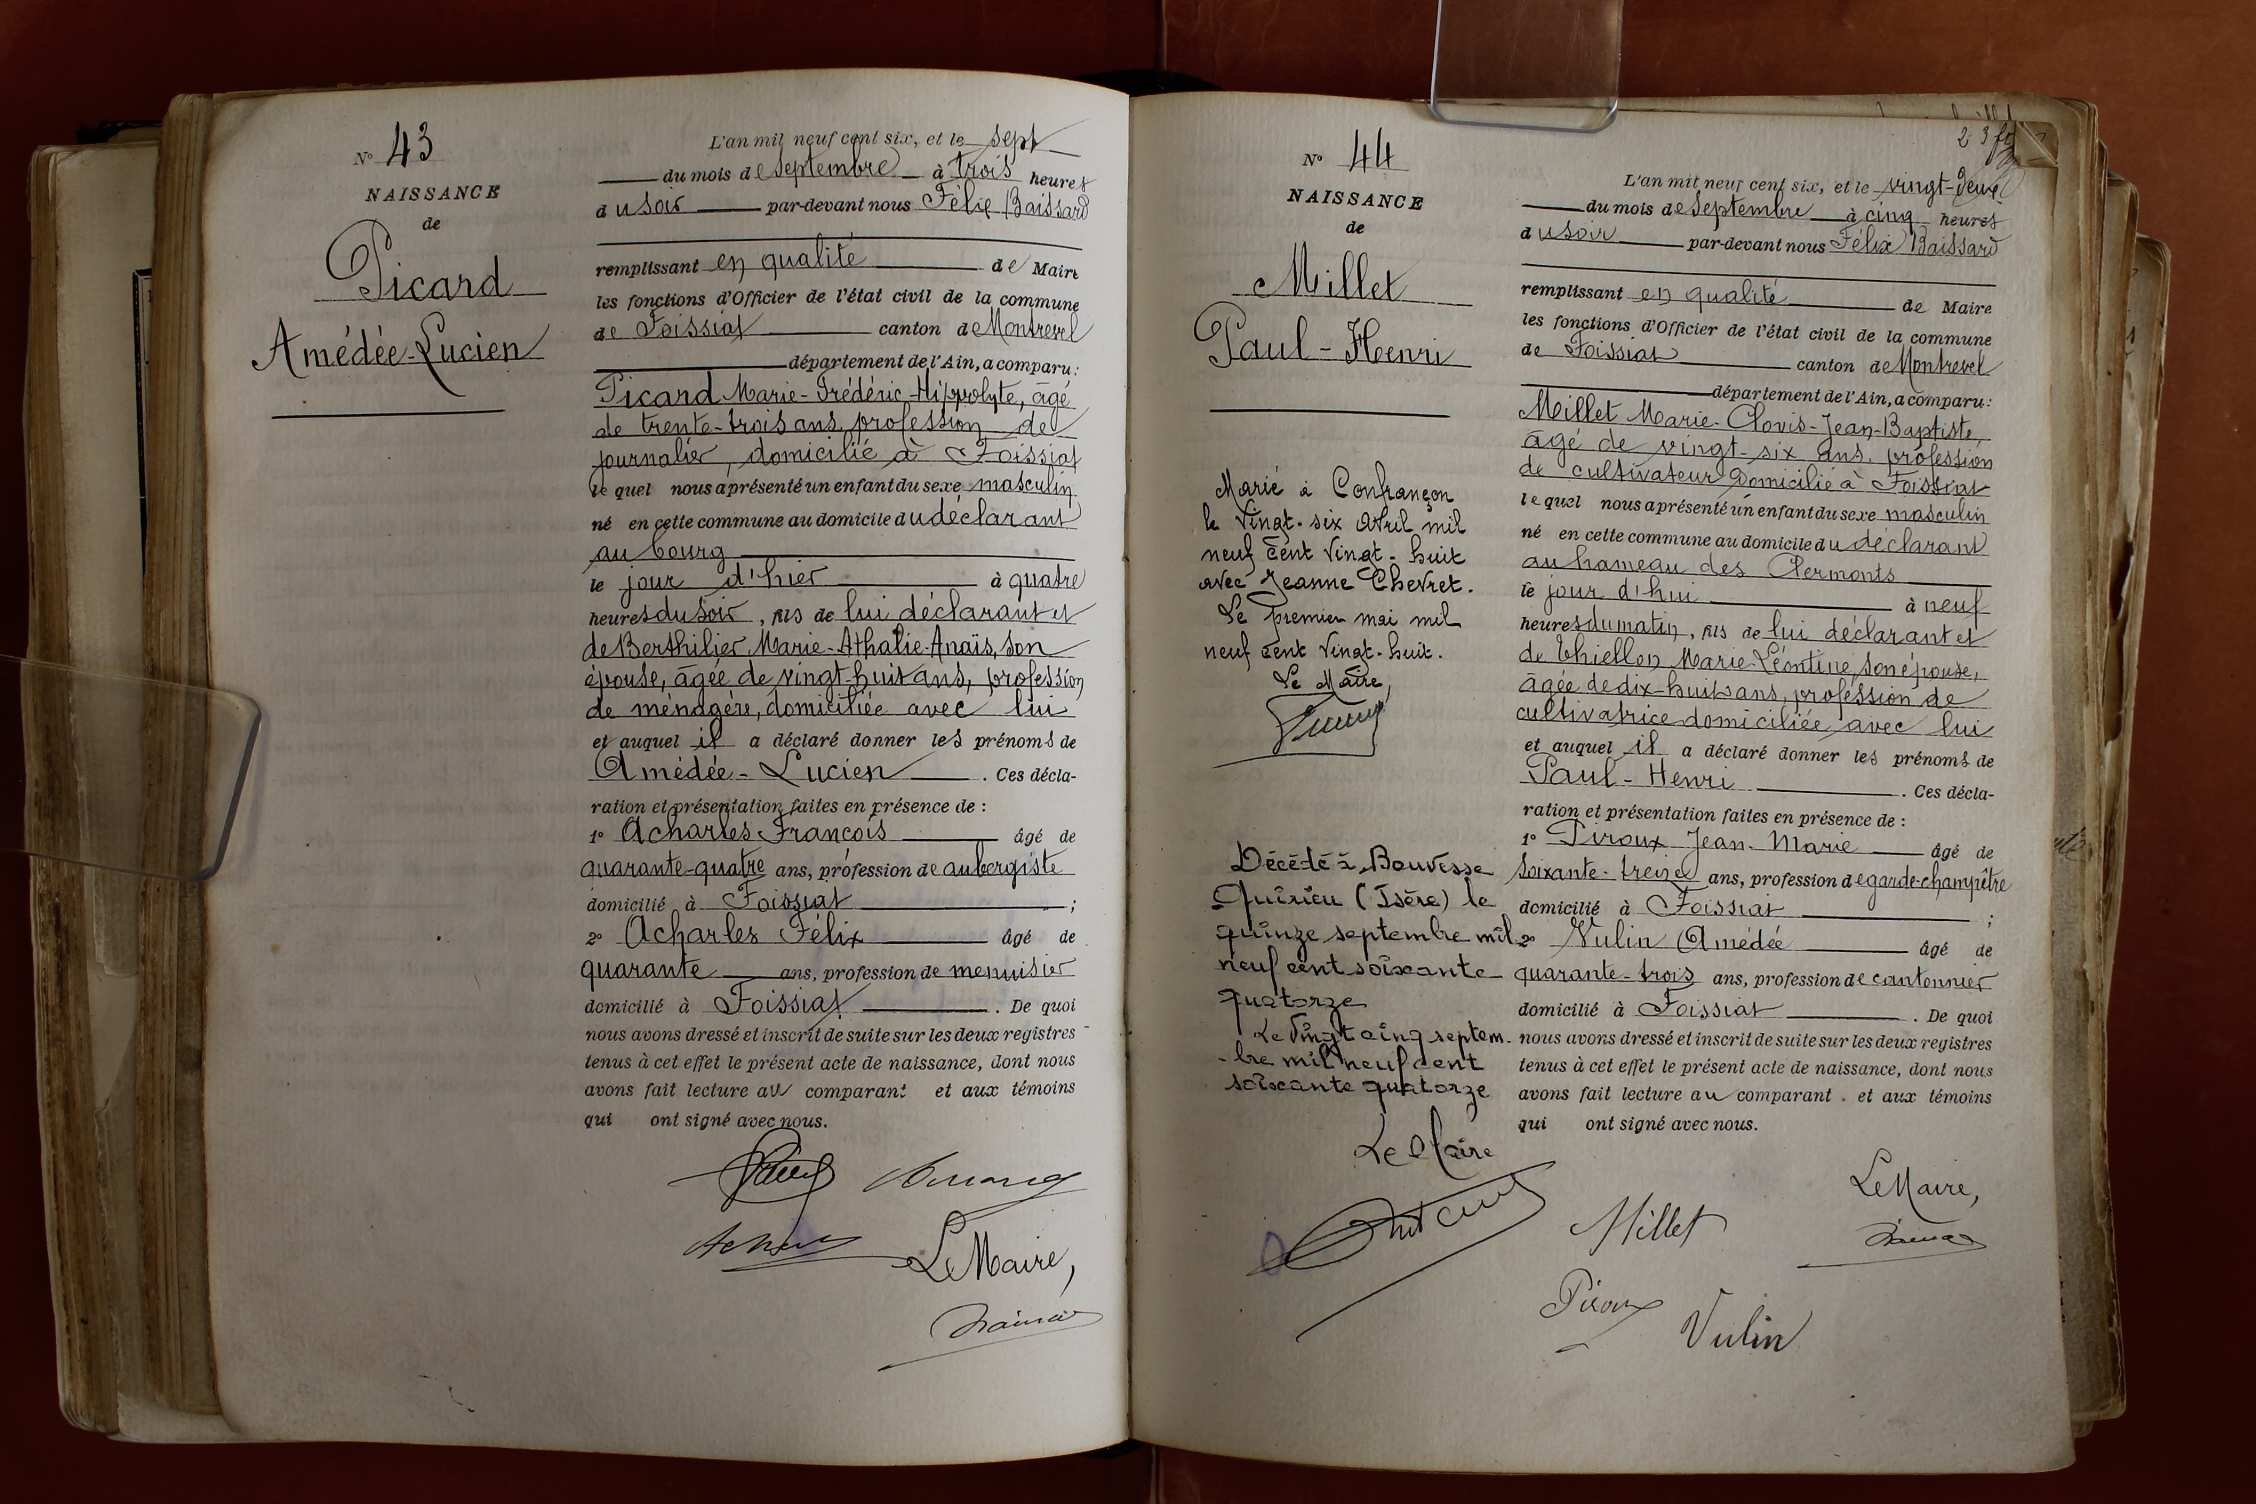 N° 43
NAISSANCE
de
Picard
Amédée-Lucien
L'an mil neuf cent six, et le sept
du mois de septembre à trois heures
du soir par-devant nous Félix Baissard
remplissant en qualité de Maire
les fonctions d'Officier de l'état civil de la commune
de Foissiat canton de Montrevel
département de l'Ain, a comparu:
Picard Marie-Frédéric-Hippolyte, âgé
de trente-trois ans, profession de
journalier, domicilié à Foissiat
le quel nous a présenté un enfant du sexe masculin
né en cette commune au domicile du déclarant
au bourg
le jour d'hier à quatre
heures du soir, fils de lui déclarant et
de Berthilier Marie-Athalie-Anaïs, son
épouse, âgée de vingt-huit ans, profession
de ménagère, domiciliée avec lui
et auquel il a déclaré donner les prénoms de
Amédée-Lucien. Ces décla-
ration et présentation faites en présence de :
1° Acharles François âgé de
quarante-quatre ans, profession de aubergiste
domicilié à Foissiat ;
2° Acharles Félix âgé de
quarante ans, profession de menuisier
domicilié à Foissiat. De quoi
nous avons dressé et inscrit de suite sur les deux registres
tenus à cet effet le présent acte de naissance, dont nous
avons fait lecture au comparant et aux témoins
qui ont signé avec nous.
Le Maire,
23 f
N° 44
NAISSANCE
de
Millet
Paul-Henri
Marié à Confrançon
le vingt-six avril mil
neuf cent vingt-huit
avec Jeanne Chevret.
Le premier mai mil
neuf cent vingt-huit.
Le Maire,
Décédé à Bouvesse
Quirieu (Isère) le
quinze septembre mil
neuf cent soixante
quatorze
Le vingt cinq septem-
-bre mil neuf cent
soixante quatorze
Le Maire
L'an mil neuf cent six, et le vingt-deux
du mois de septembre à cinq heures
du soir par-devant nous Félix Baissard
remplissant en qualité de Maire
les fonctions d'Officier de l'état civil de la commune
de Foissiat canton de Montrevel
département de l'Ain, a comparu:
Millet Marie-Clovis-Jean-Baptiste,
âgé de vingt-six ans, profession
de cultivateur domicilié à Foissiat
le quel nous a présenté un enfant du sexe masculin
né en cette commune au domicile du déclarant
au hameau des Clermonts
le jour d'hui à neuf
heures du matin, fils de lui déclarant et
de Thiellon Marie-Léontine, son épouse,
âgée de dix-huit ans, profession de
cultivatrice domiciliée avec lui
et auquel il a déclaré donner les prénoms de
Paul-Henri. Ces décla-
ration et présentation faites en présence de :
1° Piroux Jean-Marie âgé de
soixante-treize ans, profession de garde-champêtre
domicilié à Foissiat ;
2° Vulin Amédée âgé de
quarante-trois ans, profession de cantonnier
domicilié à Foissiat. De quoi
nous avons dressé et inscrit de suite sur les deux registres
tenus à cet effet le présent acte de naissance, dont nous
avons fait lecture au comparant. et aux témoins
qui ont signé avec nous.
Le Maire,
Millet
Piroux
Vulin